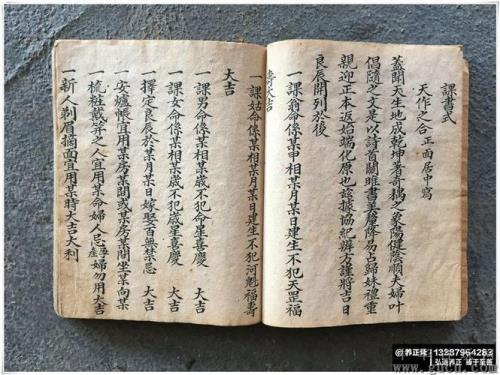 課書式
天作之合 正面居中寫
蓋聞天生地成乾坤著奇耦之象陽健陰順夫婦叶
倡隨之文是以詩首關雎書美釐降易占歸妹禮重
親迎正本返始端化原也茲據協紀辨方謹將吉日
良辰開列於後
一課翁命係某甲相某月某日建生不犯天罡福
壽大吉
一課姑命係某相某月某日建生不犯河魁福壽
大吉
一課男命係某相某歲不犯命星喜慶 大吉
一課女命係某相某歲不犯歲星喜慶 大吉
一擇定良辰於某月某日嫁娶百無禁忌 大吉
一安爐帳宜用某房某間或某房某間坐某向某
一梳粧戴笄之人宜用某命婦人忌孕產婦勿用大吉
一新人剃眉摘面宜用某時大吉大利
@養正锋 13237964282
弘道养正 臻于至善